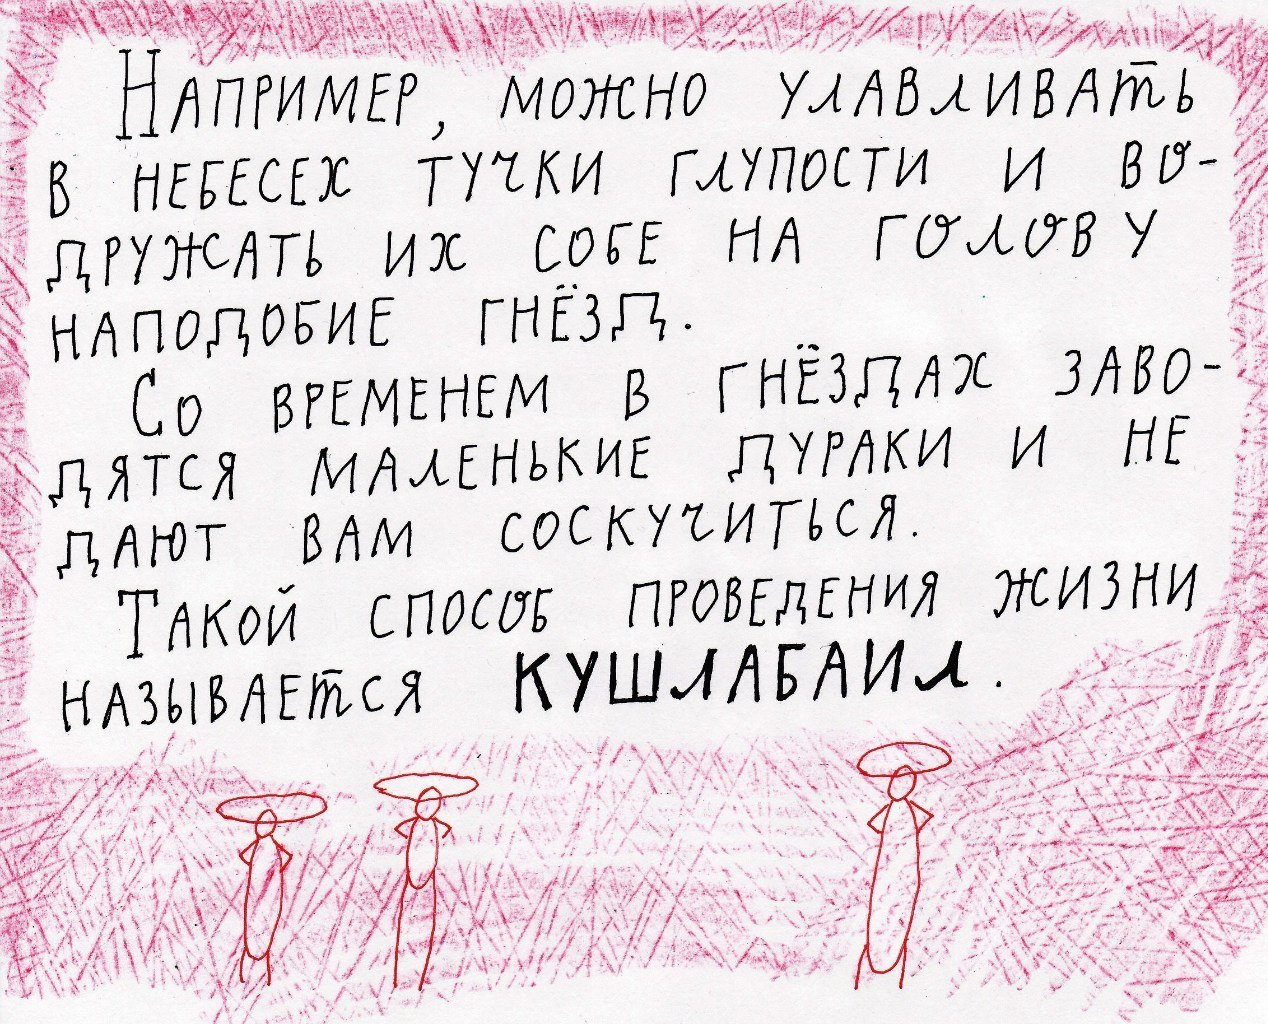 Например, можно улавливать
в небесех тучки глупости и во-
дружать их собе на голову
наподобие гнёзд.
Со временем в гнёздах заво-
дятся маленькие дураки и не
дают вам соскучиться.
Такой способ проведения жизни
называется КУШЛАБАИЛ.